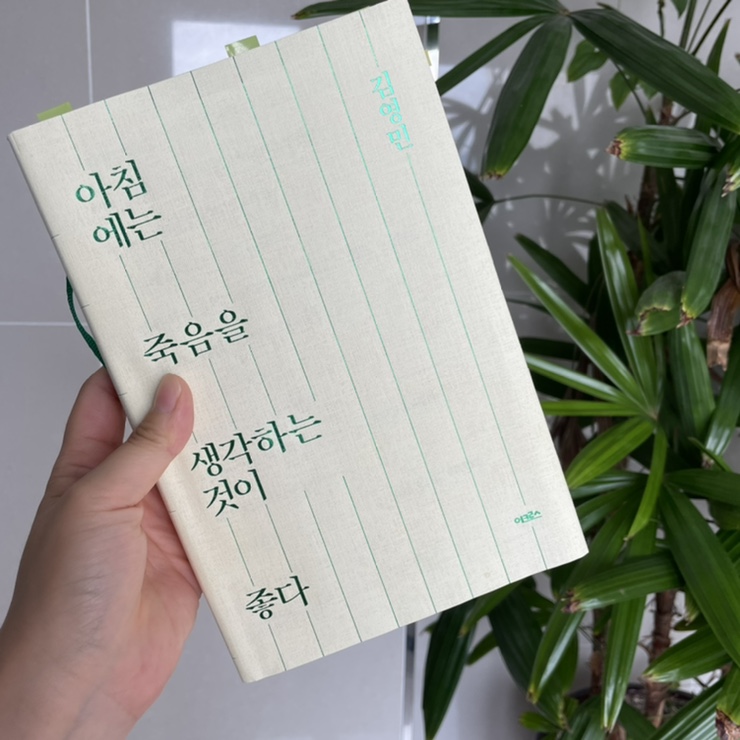 김영민
아침
에는
죽음을
생각하는
것이
좋다
어크로스